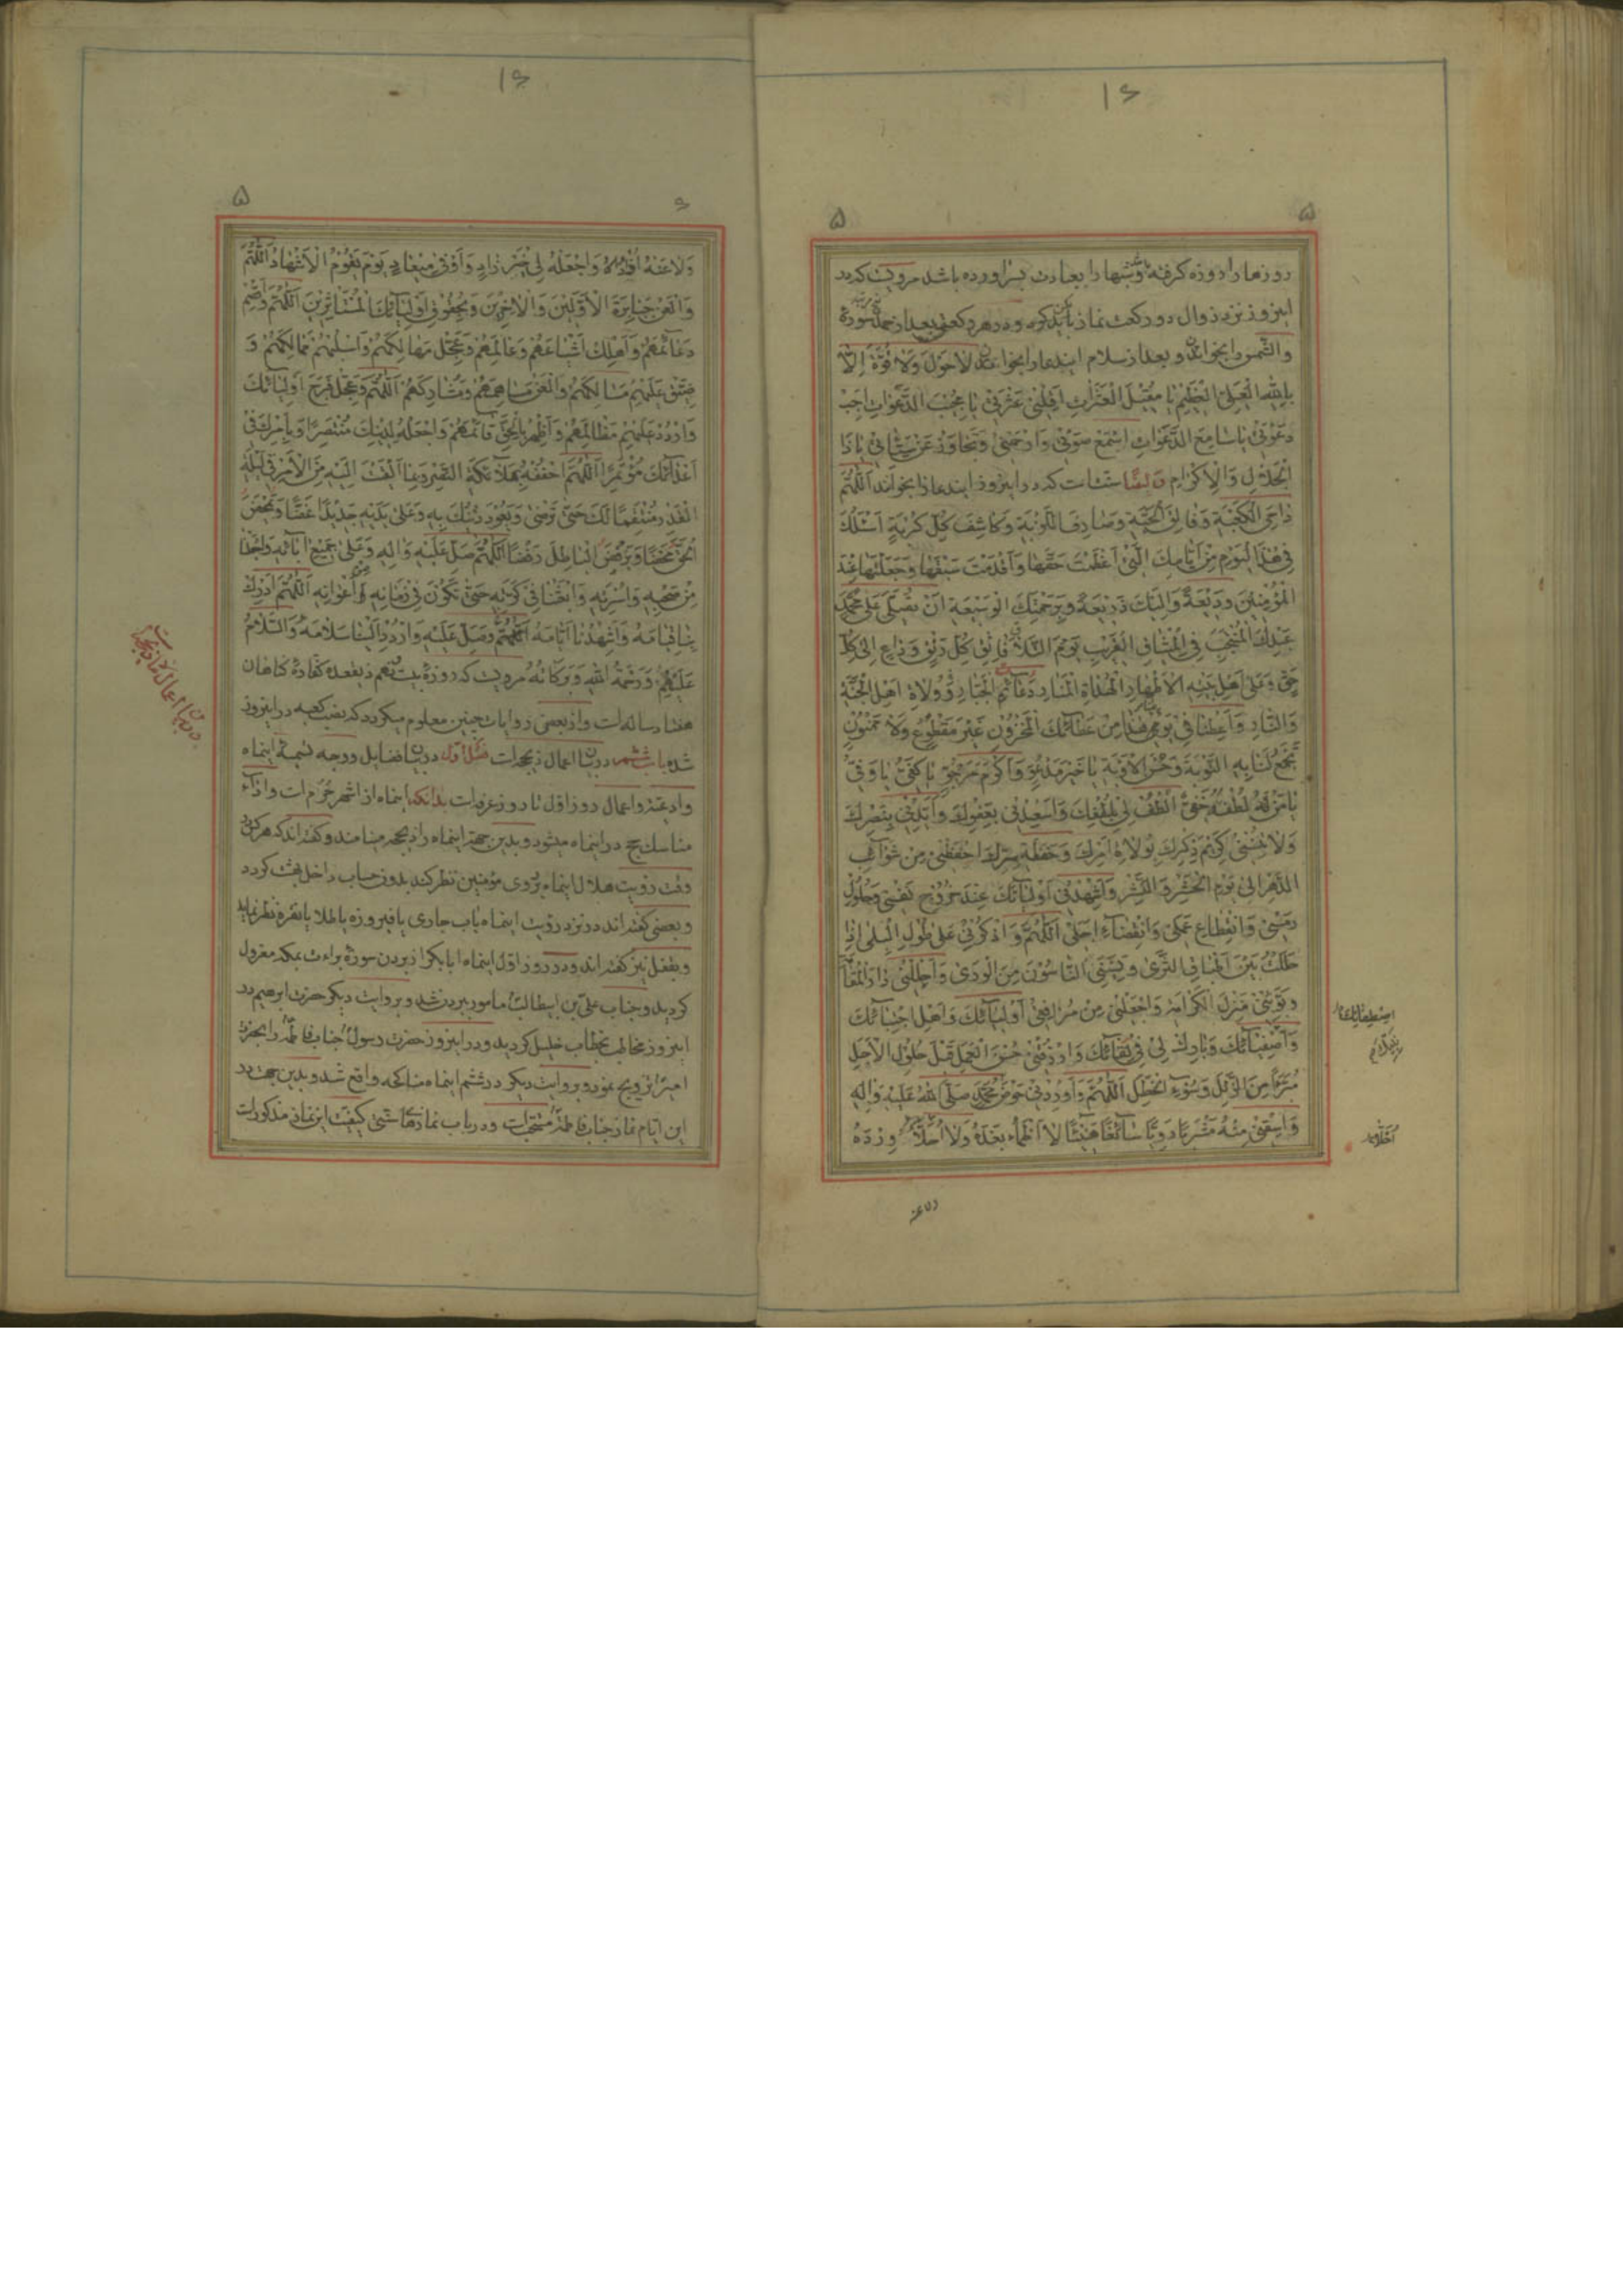 روزها را روزه گرفته و شبها را بعبادت بسر آورده باشد مرویست که در
اینروز نزد زوال دو رکعت نماز باید کرد و در هر رکعتی بعد از حمد سوره
والشمس را بخواند و بعد از سلام ایندعا را بخواند لاحَوْلَ وَلا قُوَّةَ اِلّا
بِاللهِ الْعَلِيِّ الْعَظِيمِ يا مُقيلَ الْعَثَراتِ اَقِلْني عَثْرَتي يا مُجيبَ الدَّعَواتِ اَجِبْ
دَعْوَتي يا سامِعَ الدَّعَواتِ اسْمَعْ صَوْتي وَارْحَمْني وَتَجاوَزْ عَنْ سَيِّئاتي يا ذَا
الْجَلالِ وَالْاِكْرامِ و ایضا سنتست که در اینروز ایندعا را بخواند اَللّٰهُمَّ
داحِيَ الْكَعْبَةِ وَفالِقَ الْحَبَّةِ وَصارِفَ اللَّزْبَةِ وَكاشِفَ كُلِّ كُرْبَةٍ اَسْئَلُكَ
في هٰذَا الْيَوْمِ مِنْ اَيّامِكَ الَّتي اَعْظَمْتَ حَقَّها وَاَقْدَمْتَ سَبْقَها وَجَعَلْتَها عِنْدَ
الْمُؤْمِنينَ وَديعَةً وَاِلَيْكَ ذَريعَةً وَبِرَحْمَتِكَ الْوَسيعَةِ اَنْ تُصَلِّيَ عَلى مُحَمَّدٍ
عَبْدِكَ الْمُنْتَجَبِ فِي الْميثاقِ الْقَريبِ يَوْمَ التَّلاقِ فاتِقِ كُلِّ رَتْقٍ وَداعٍ اِلى كُلِّ
حَقٍّ وَعَلى اَهْلِ بَيْتِهِ الْاَطْهارِ الْهُداةِ الْمَنارِ دَعائِمِ الْجَبّارِ وَوُلاةِ اَهْلِ الْجَنَّةِ
وَالنّارِ وَاَعْطِنا في يَوْمِنا هٰذا مِنْ عَطائِكَ الْمَخْزُونِ غَيْرَ مَقْطُوعٍ وَلا مَمْنُونٍ
تَجْمَعُ لَنا بِهِ التَّوْبَةَ وَحُسْنَ الْاَوْبَةِ يا خَيْرَ مَدْعُوٍّ وَاَكْرَمَ مَرْجُوٍّ يا كَفِيُّ يا وَفِيُّ
يا مَنْ لُطْفُهُ خَفِيٌّ اُلْطُفْ لي بِلُطْفِكَ وَاَسْعِدْني بِعَفْوِكَ وَاَيِّدْني بِنَصْرِكَ
وَلا تُنْسِني كَريمَ ذِكْرِكَ بِوُلاةِ اَمْرِكَ وَحَفَظَةِ سِرِّكَ احْفَظْني مِنْ شَوائِبِ
الدَّهْرِ اِلى يَوْمِ الْحَشْرِ وَالنَّشْرِ وَاَشْهِدْني اَوْلِيائَكَ عِنْدَ خُرُوجِ نَفْسي وَحُلُولِ
رَمْسي وَانْقِطاعِ عَمَلي وَانْقِضاءِ اَجَلي اَللّٰهُمَّ وَاذْكُرْني عَلى طُولِ الْبِلى اِذا
حَلَلْتُ بَيْنَ اَطْباقِ الثَّرى وَنَسِيَنِي النّاسُونَ مِنَ الْوَرى وَاَحْلِلْني دارَ الْمُقامَةِ
وَبَوِّئْني مَنْزِلَ الْكَرامَةِ وَاجْعَلْني مِنْ مُرافِقي اَوْلِيائِكَ وَاَهْلِ اجْتِبائِكَ
وَاَصْفِيائِكَ وَبارِكْ لي في لِقائِكَ وَارْزُقْني حُسْنَ الْعَمَلِ قَبْلَ حُلُولِ الْاَجَلِ
مُبَرَّءًا مِنَ الزَّلَلِ وَسُوءِ الْخَطَلِ اَللّٰهُمَّ وَاَوْرِدْني حَوْضَ مُحَمَّدٍ صَلَّى اللهُ عَلَيْهِ وَالِهِ
وَاسْقِني مِنْهُ مَشْرَبًا رَوِيًّا سائِغًا هَنيئًا لا اَظْمَأُ بَعْدَهُ وَلا اُحَلَّأُ وِرْدَهُ
اصطفائك
ولا عنه
وَلا عَنْهُ اُذادُ وَاجْعَلْهُ لي خَيْرَ زادٍ وَاَوْفى ميعادٍ يَوْمَ يَقُومُ الْاَشْهادُ اَللّٰهُمَّ
وَالْعَنْ جَبابِرَةَ الْاَوَّلينَ وَالْاٰخِرينَ وَبِحُقُوقِ اَوْلِيائِكَ الْمُسْتَأْثِرينَ اَللّٰهُمَّ وَاقْصِمْ
دَعائِمَهُمْ وَاَهْلِكْ اَشْياعَهُمْ وَعامِلَهُمْ وَعَجِّلْ مَهالِكَهُمْ وَاسْلُبْهُمْ مَمالِكَهُمْ وَ
ضَيِّقْ عَلَيْهِمْ مَسالِكَهُمْ وَالْعَنْ مُساهِمَهُمْ وَمُشارِكَهُمْ اَللّٰهُمَّ وَعَجِّلْ فَرَجَ اَوْلِيائِكَ
وَارْدُدْ عَلَيْهِمْ مَظالِمَهُمْ وَاَظْهِرْ بِالْحَقِّ قائِمَهُمْ وَاجْعَلْهُ لِدينِكَ مُنْتَصِرًا وَبِاَمْرِكَ في
اَعْدائِكَ مُؤْتَمِرًا اَللّٰهُمَّ احْفُفْهُ بِمَلائِكَةِ النَّصْرِ وَبِما اَلْقَيْتَ اِلَيْهِ مِنَ الْاَمْرِ في لَيْلَةِ
الْقَدْرِ مُنْتَقِمًا لَكَ حَتّى تَرْضى وَيَعُودَ دينُكَ بِهِ وَعَلى يَدَيْهِ جَديدًا غَضًّا وَيَمْحَضَ
الْحَقَّ مَحْضًا وَيَرْفُضَ الْباطِلَ رَفْضًا اَللّٰهُمَّ صَلِّ عَلَيْهِ وَالِهِ وَعَلى جَميعِ ابائِهِ وَاجْعَلْنا
مِنْ صَحْبِهِ وَاُسْرَتِهِ وَابْعَثْنا في كَرَّتِهِ حَتّى نَكُونَ في زَمانِهِ مِنْ اَعْوانِهِ اَللّٰهُمَّ اَدْرِكْ
بِنا قِيامَهُ وَاَشْهِدْنا اَيّامَهُ اَللّٰهُمَّ وَصَلِّ عَلَيْهِ وَارْدُدْ اِلَيْنا سَلامَهُ وَالسَّلامُ
عَلَيْهِمْ وَرَحْمَةُ اللهِ وَبَرَكاتُهُ مرویست که روزه بیست نهم ذیقعده کفاره گناهان
هفتاد ساله است و از بعضی روایات چنین معلوم میگردد که نصب کعبه در اینروز
شده باب ششم در بیان اعمال ذیحجه است فصل اول در بیان فضایل و وجه تسمیه اینماه
و ادعیه و اعمال روز اول تا روز عرفه است بدانکه اینماه از اشهر حرم است و ادای
مناسك حج در اینماه میشود و بدین جهة اینماه را ذیحجه مینامند و گفته اند که هر کس
وقت رؤیت هلال اینماه بروی مؤمنین نظر کند بدون حساب داخل بهشت گردد
و بعضی گفته اند در نزد رؤیت اینماه باب جاری یا فیروزه یا طلا یا نقره نظر نماید
و بغفل نیز گفته اند و در روز اول اینماه ابا بکر از بردن سوره براءت بمکه معزول
گردید و جناب علی بن ابیطالب مامور ببردن شد و بروایت دیگر حضرت ابرهیم در
اینروز مخاطب بخطاب خلیل گردید و در اینروز حضرت رسول جناب فاطمه را بحضرت
امیر تزویج نمود و بروایت دیگر در ششم اینماه مناکحه واقع شد و بدین جهت در
این ایام نماز جناب فاطمه مستحب است و در باب نمازهای سنتی کیفیت این نماز مذکور است
در بیان اعمال ماه ذیحجه است